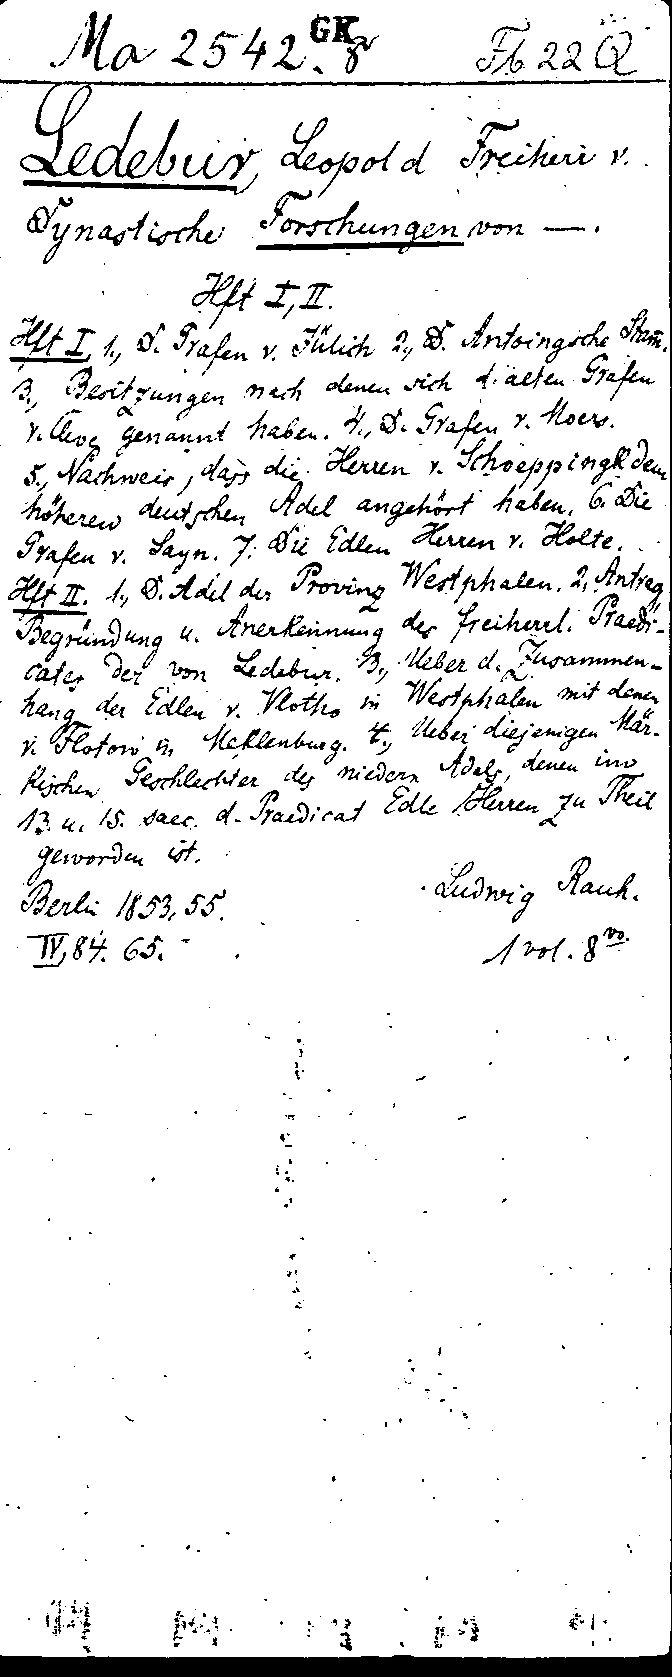 Ma 2542. 8 GK Fb 22 Q
Ledebur, Leopold Freiherr v.
Dynastische Forschungen von —.
Hft I, II.
Hft I, 1., D. Grafen v. Jülich 2., D. Antoingsche Stam̄.
3., Besitzungen nach denen sich d. alten Grafen
v. Cleve genannt haben. 4., D. Grafen v. Moers.
5., Nachweis, dass die Herren v. Schoeppingk dem
höheren deutschen Adel angehört haben. 6. Die
Grafen v. Sayn. 7. Die Edlen Herren v. Holte.
Hft II. 1., D. Adel der Provinz Westphalen. 2., Antrag,
Begründung u. Anerkennung des freiherrl. Praedi-
cates der von Ledebur. 3., Ueber d. Zusammen-
hang der Edlen v. Vlotho in Westphalen mit denen
v. Flotow in Mecklenburg. 4., Ueber diejenigen Mär-
kischen Geschlechter des niedern Adels, denen im
13. u. 15. saec. d. Praedicat Edle Herren zu Theil
geworden ist.
Berlin 1853, 55. Ludwig Rauh.
IV, 84. 65. 1 vol. 8vo.